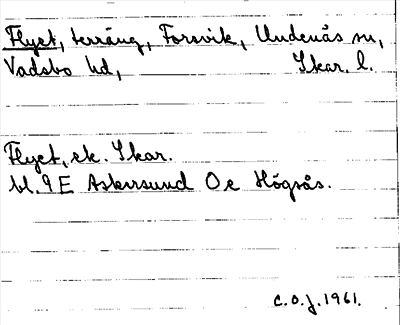 Flyet, terräng, Forsvik, Undenäs sn,
Vadsbo hd, Skar. l.
Flyet, ek. Skar.
bl. 9 E Askersund O e Högsås.
C.O.J. 1961.